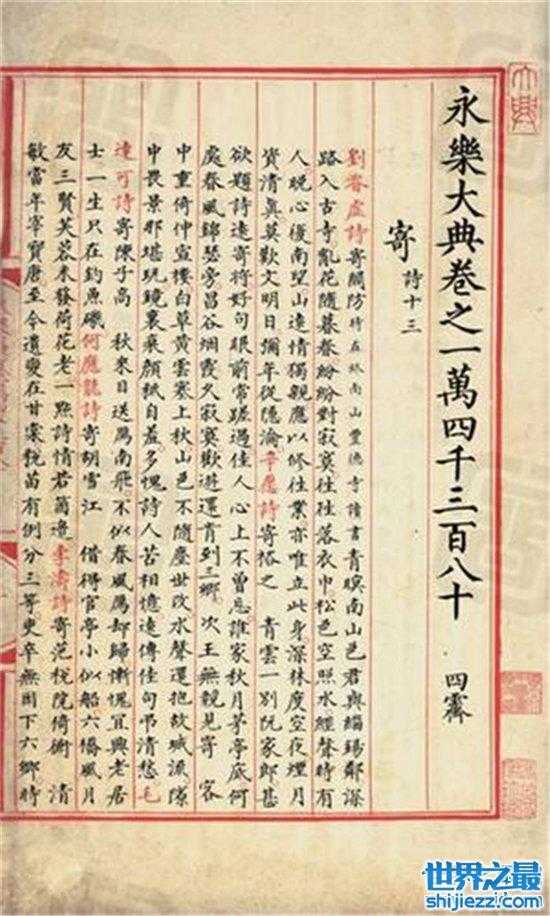 永樂大典卷之一萬四千三百八十 四霽
寄 詩十三
劉眘虛詩寄閻防時在終南山豐德寺讀書 青暝南山邑君與緇錫鄰深
路入古寺亂花隨暮春紛紛對寂寞往往落衣巾松色空照水經聲時有
人晚心復南望山遠情獨親應以修往業亦唯立此身深林度空夜煙月
資清真莫歎文明日彌年從隱淪辛愿詩寄裕之 青雲一別阮家郎甚
欲題詩遠寄將好句眼前常蹉過佳人心上不曾忘誰家秋月茅亭底何
處春風錦瑟旁昌谷烟霞久寂寞歎遊還肯到三鄉 次王無競見寄 客
中重倚仲宣樓白草黃雲塞上秋山色不隨塵世改水聲還抱故城流隙
中畏景那堪玩鏡裏衰顏秪自羞多愧詩人苦相憶遠傳佳句弔清愁毛
達可詩寄陳子高 秋來目送鴈南飛不似春風鴈却歸慚愧宜興老居
士一生只在釣魚磯何應龍詩寄胡雪江 借得官亭小似船六橋風月
友三賢芙蓉未發荷花老一點詩情若箇邊李濤詩寄范稅院倚術 清
敏當年宰寶唐至今遺愛在甘棠稅苗有例分三等吏卒無因下六鄉時
世界之最
shijiezzj.com